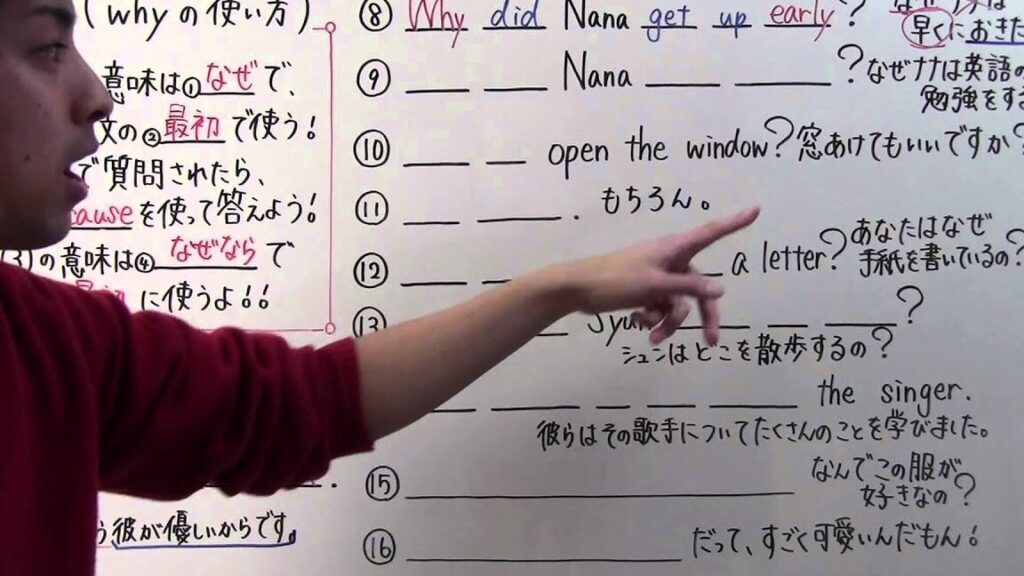 (whyの使い方)
意味は①なぜで、
文の②最初で使う!
で質問されたら、
causeを使って答えよう!
(3)の意味は④なぜならで
最初に使うよ!!
彼が優しいからです。
⑧ Why did Nana get up early?
早くにおきた
⑨ ___ ___ Nana ___ ___ ? なぜナナは英語の
勉強をする
⑩ ___ ___ open the window? 窓あけてもいいですか?
⑪ ___ ___ . もちろん。
⑫ ___ ___ ___ a letter? あなたはなぜ
手紙を書いているの?
⑬ ___ Syun ___ ___ ___ ?
シュンはどこを散歩するの?
___ ___ ___ ___ the singer.
彼らはその歌手についてたくさんのことを学びました。
⑮ ___ なんでこの服が
好きなの?
⑯ ___ だって、すごく可愛いんだもん!